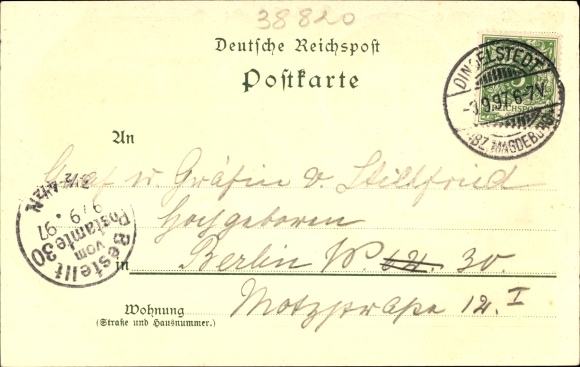 38820
Deutsche Reichspost
Postkarte
DINGELSTEDT
9.97. 6-7V.
REICHSPOST
(BZ. MAGDEBURG)
An
Graf u Gräfin v. Stillfried
Hochgeboren
in Berlin W. 62. 30.
Wohnung Motzstraße 12. I
(Straße und Hausnummer.)
Bestellt
vom
Postamte 30
9/9.97
N.